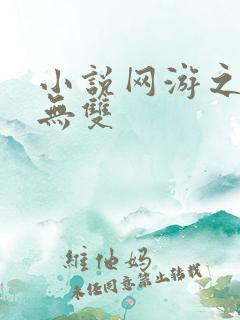 小説网游之
無雙
維他妈
未经同意禁止转载